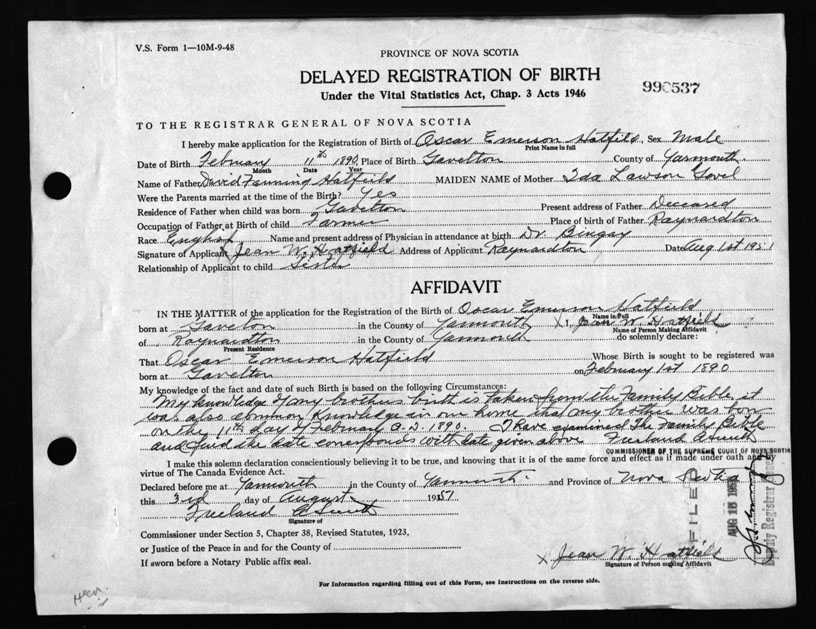 V.S. Form 1—10M-9-48
PROVINCE OF NOVA SCOTIA
DELAYED REGISTRATION OF BIRTH
Under the Vital Statistics Act, Chap. 3 Acts 1946
990537
TO THE REGISTRAR GENERAL OF NOVA SCOTIA
I hereby make application for the Registration of Birth of Oscar Emerson Hatfield, Sex Male
Print Name in full
Date of Birth February 11th 1890, Place of Birth Gavelton County of Yarmouth
Month Date Year
Name of Father David Fanning Hatfield MAIDEN NAME of Mother Ida Lawson Gavel
Were the Parents married at the time of the Birth? Yes
Residence of Father when child was born Gavelton Present address of Father Deceased
Occupation of Father at Birth of child Farmer Place of birth of Father Raynardton
Race English Name and present address of Physician in attendance at birth Dr Bingay
Signature of Applicant Jean W. Hatfield Address of Applicant Raynardton Date Aug 1st 1951
Relationship of Applicant to child Sister
AFFIDAVIT
IN THE MATTER of the application for the Registration of the Birth of Oscar Emerson Hatfield
Name in Full
born at Gavelton in the County of Yarmouth X I, Jean W. Hatfield
Name of Person Making Affidavit
of Raynardton in the County of Yarmouth do solemnly declare:
Present Residence
That Oscar Emerson Hatfield Whose Birth is sought to be registered was
born at Gavelton on February 1st 1890
My knowledge of the fact and date of such Birth is based on the following Circumstances:
My knowledge of my brothers birth is taken from the Family Bible, it
was also common knowledge in our home that my brother was born
on the 11th day of February A.D. 1890. I have examined the Family Bible
and find the date corresponds with date given above Freeland A Smith
COMMISSIONER OF THE SUPREME COURT OF NOVA SCOTIA
I make this solemn declaration conscientiously believing it to be true, and knowing that it is of the same force and effect as if made under oath and by
virtue of The Canada Evidence Act.
Declared before me at Yarmouth in the County of Yarmouth and Province of Nova Scotia
this 3rd day of August 1951
Freeland A Smith
Signature of
Commissioner under Section 5, Chapter 38, Revised Statutes, 1923,
or Justice of the Peace in and for the County of
If sworn before a Notary Public affix seal.
FILED
AUG 16 1951
Deputy Registrar General
X Jean W. Hatfield
Signature of Person making Affidavit
For Information regarding filling out of this Form, see Instructions on the reverse side.